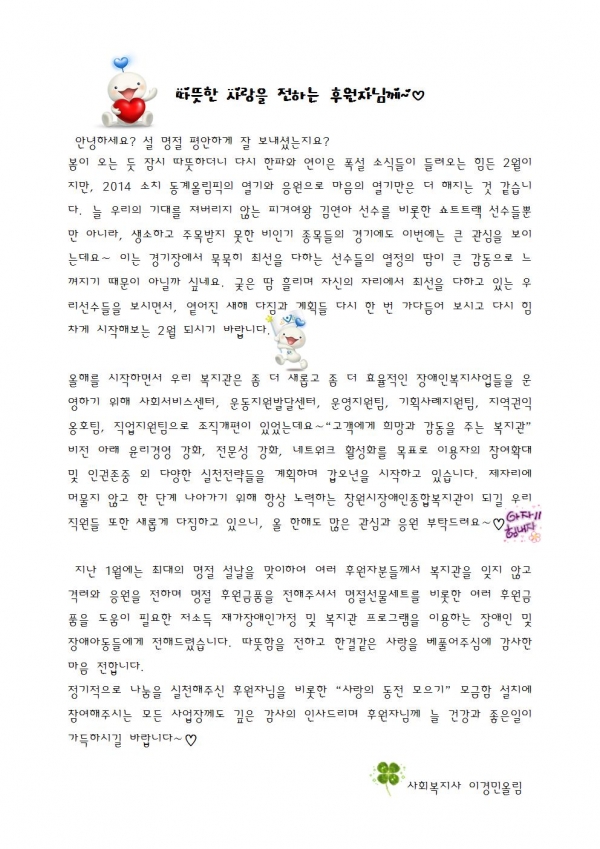 따뜻한 사랑을 전하는 후원자님께~♡
안녕하세요? 설 명절 평안하게 잘 보내셨는지요?
봄이 오는 듯 잠시 따뜻하더니 다시 한파와 연이은 폭설 소식들이 들려오는 힘든 2월이
지만, 2014 소치 동계올림픽의 열기와 응원으로 마음의 열기만은 더 해지는 것 같습니
다. 늘 우리의 기대를 져버리지 않는 피겨여왕 김연아 선수를 비롯한 쇼트트랙 선수들뿐
만 아니라, 생소하고 주목받지 못한 비인기 종목들의 경기에도 이번에는 큰 관심을 보이
는데요~ 이는 경기장에서 묵묵히 최선을 다하는 선수들의 열정의 땀이 큰 감동으로 느
껴지기 때문이 아닐까 싶네요. 궂은 땀 흘리며 자신의 자리에서 최선을 다하고 있는 우
리선수들을 보시면서, 옅어진 새해 다짐과 계획들 다시 한 번 가다듬어 보시고 다시 힘
차게 시작해보는 2월 되시기 바랍니다.
올해를 시작하면서 우리 복지관은 좀 더 새롭고 좀 더 효율적인 장애인복지사업들을 운
영하기 위해 사회서비스센터, 운동지원발달센터, 운영지원팀, 기획사례지원팀, 지역권익
옹호팀, 직업지원팀으로 조직개편이 있었는데요~“고객에게 희망과 감동을 주는 복지관”
비전 아래 윤리경영 강화, 전문성 강화, 네트워크 활성화를 목표로 이용자의 참여확대
및 인권존중 외 다양한 실천전략들을 계획하며 갑오년을 시작하고 있습니다. 제자리에
머물지 않고 한 단계 나아가기 위해 항상 노력하는 창원시장애인종합복지관이 되길 우리
직원들 또한 새롭게 다짐하고 있으니, 올 한해도 많은 관심과 응원 부탁드려요~♡
아자!!
힘내자
지난 1월에는 최대의 명절 설날을 맞이하여 여러 후원자분들께서 복지관을 잊지 않고
격려와 응원을 전하며 명절 후원금품을 전해주셔서 명절선물세트를 비롯한 여러 후원금
품을 도움이 필요한 저소득 재가장애인가정 및 복지관 프로그램을 이용하는 장애인 및
장애아동들에게 전해드렸습니다. 따뜻함을 전하고 한결같은 사랑을 베풀어주심에 감사한
마음 전합니다.
정기적으로 나눔을 실천해주신 후원자님을 비롯한 “사랑의 동전 모으기” 모금함 설치에
참여해주시는 모든 사업장께도 깊은 감사의 인사드리며 후원자님께 늘 건강과 좋은일이
가득하시길 바랍니다~♡
사회복지사 이경민올림